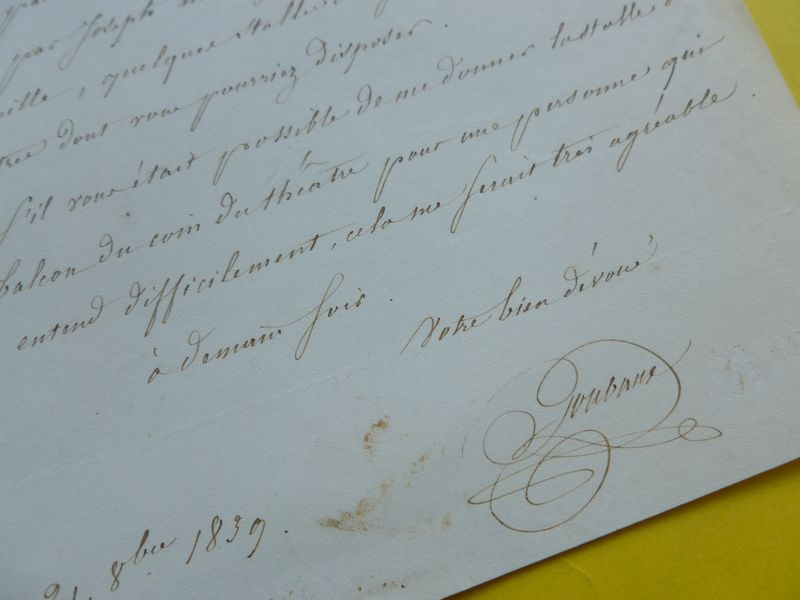 par Joseph
quelques stalles
dont vous pourriez disposer.
S'il vous était possible de me donner la stalle
balcon du coin du théâtre pour une personne qui
entend difficilement, cela me serait très agréable.
à demain soir.
Votre bien dévoué
Goubaux
21. 8bre 1839.